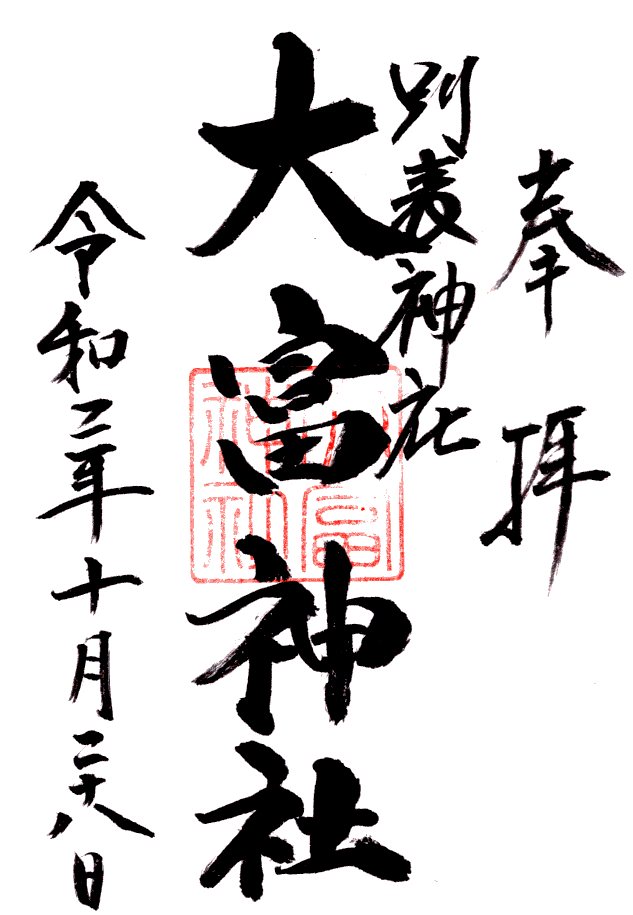 奉拝
別表神社
大富神社
令和二年十月二十八日
大富
神社